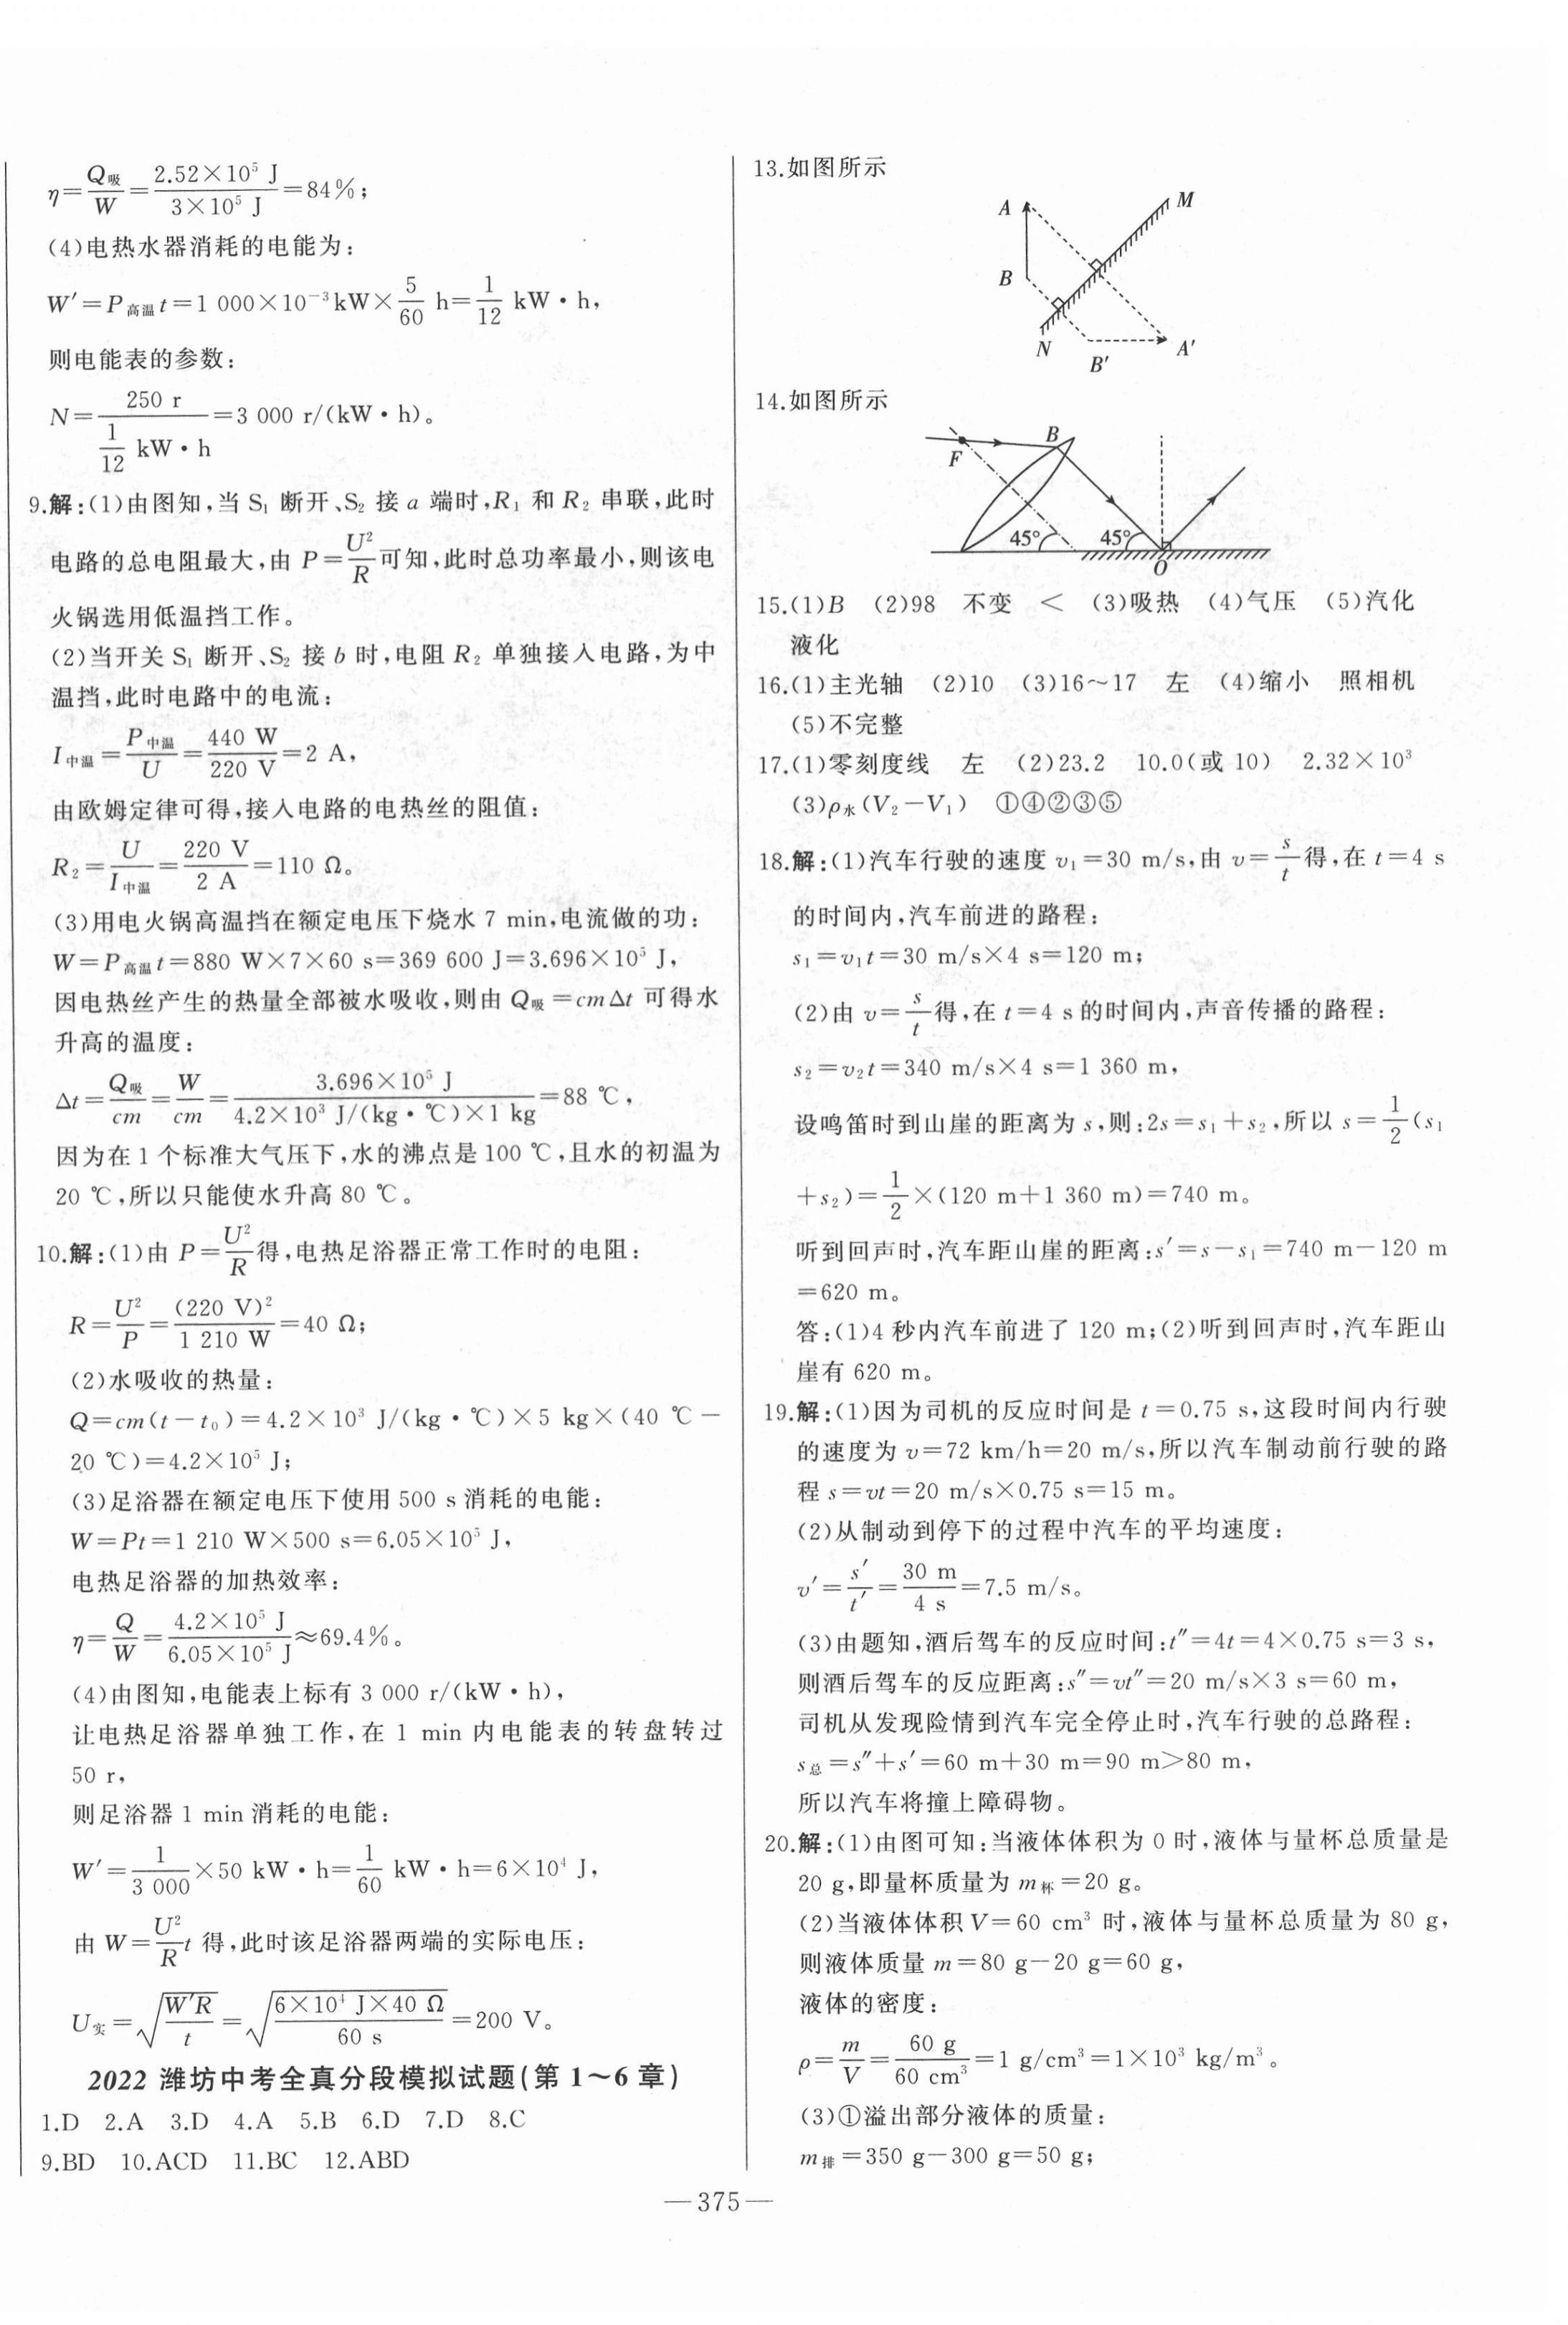 η=Q吸/W=2.52×10⁵ J/3×10⁵ J=84%;
(4)电热水器消耗的电能为:
W′=P高温t=1 000×10⁻³kW×5/60 h=1/12 kW·h,
则电能表的参数:
N=250 r/(1/12 kW·h)=3 000 r/(kW·h)。
9.解:(1)由图知,当 S₁ 断开、S₂ 接 a 端时,R₁ 和 R₂ 串联,此时
电路的总电阻最大,由 P=U²/R可知,此时总功率最小,则该电
火锅选用低温挡工作。
(2)当开关 S₁ 断开、S₂ 接 b 时,电阻 R₂ 单独接入电路,为中
温挡,此时电路中的电流:
I中温=P中温/U=440 W/220 V=2 A,
由欧姆定律可得,接入电路的电热丝的阻值:
R₂=U/I中温=220 V/2 A=110 Ω。
(3)用电火锅高温挡在额定电压下烧水 7 min,电流做的功:
W=P高温t=880 W×7×60 s=369 600 J=3.696×10⁵ J,
因电热丝产生的热量全部被水吸收,则由 Q吸=cmΔt 可得水
升高的温度:
Δt=Q吸/cm=W/cm=3.696×10⁵ J/4.2×10³ J/(kg·℃)×1 kg=88 ℃,
因为在 1 个标准大气压下,水的沸点是 100 ℃,且水的初温为
20 ℃,所以只能使水升高 80 ℃。
10.解:(1)由 P=U²/R得,电热足浴器正常工作时的电阻:
R=U²/P=(220 V)²/1 210 W=40 Ω;
(2)水吸收的热量:
Q=cm(t-t₀)=4.2×10³ J/(kg·℃)×5 kg×(40 ℃-
20 ℃)=4.2×10⁵ J;
(3)足浴器在额定电压下使用 500 s 消耗的电能:
W=Pt=1 210 W×500 s=6.05×10⁵ J,
电热足浴器的加热效率:
η=Q/W=4.2×10⁵ J/6.05×10⁵ J≈69.4%。
(4)由图知,电能表上标有 3 000 r/(kW·h),
让电热足浴器单独工作,在 1 min 内电能表的转盘转过
50 r,
则足浴器 1 min 消耗的电能:
W′=1/3 000×50 kW·h=1/60 kW·h=6×10⁴ J,
由 W=U²/R t 得,此时该足浴器两端的实际电压:
U实=√(W′R/t)=√(6×10⁴ J×40 Ω/60 s)=200 V。
2022 潍坊中考全真分段模拟试题(第 1～6 章)
1.D 2.A 3.D 4.A 5.B 6.D 7.D 8.C
9.BD 10.ACD 11.BC 12.ABD
13.如图所示
A
M
B
N
B′
A′
14.如图所示
B
F
45°
45°
O
15.(1)B (2)98 不变 < (3)吸热 (4)气压 (5)汽化
液化
16.(1)主光轴 (2)10 (3)16～17 左 (4)缩小 照相机
(5)不完整
17.(1)零刻度线 左 (2)23.2 10.0(或 10) 2.32×10³
(3)ρ水(V₂-V₁) ①④②③⑤
18.解:(1)汽车行驶的速度 v₁=30 m/s,由 v=s/t得,在 t=4 s
的时间内,汽车前进的路程:
s₁=v₁t=30 m/s×4 s=120 m;
(2)由 v=s/t得,在 t=4 s 的时间内,声音传播的路程:
s₂=v₂t=340 m/s×4 s=1 360 m,
设鸣笛时到山崖的距离为 s,则:2s=s₁+s₂,所以 s=1/2(s₁
+s₂)=1/2×(120 m+1 360 m)=740 m。
听到回声时,汽车距山崖的距离:s′=s-s₁=740 m-120 m
=620 m。
答:(1)4 秒内汽车前进了 120 m;(2)听到回声时,汽车距山
崖有 620 m。
19.解:(1)因为司机的反应时间是 t=0.75 s,这段时间内行驶
的速度为 v=72 km/h=20 m/s,所以汽车制动前行驶的路
程 s=vt=20 m/s×0.75 s=15 m。
(2)从制动到停下的过程中汽车的平均速度:
v′=s′/t′=30 m/4 s=7.5 m/s。
(3)由题知,酒后驾车的反应时间:t″=4t=4×0.75 s=3 s,
则酒后驾车的反应距离:s″=vt″=20 m/s×3 s=60 m,
司机从发现险情到汽车完全停止时,汽车行驶的总路程:
s总=s″+s′=60 m+30 m=90 m>80 m,
所以汽车将撞上障碍物。
20.解:(1)由图可知:当液体体积为 0 时,液体与量杯总质量是
20 g,即量杯质量为 m杯=20 g。
(2)当液体体积 V=60 cm³ 时,液体与量杯总质量为 80 g,
则液体质量 m=80 g-20 g=60 g,
液体的密度:
ρ=m/V=60 g/60 cm³=1 g/cm³=1×10³ kg/m³。
(3)①溢出部分液体的质量:
m排=350 g-300 g=50 g;
—375—